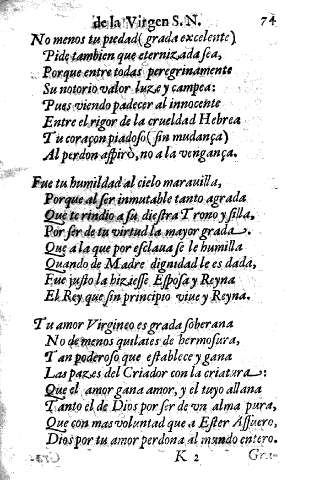 de la Virgen S. N. 74
No menos tu piedad (grada excelente)
Pide tambien que eternizada sea,
Porque entre todas peregrinamente
Su notorio valor luze y campea:
Pues viendo padecer al innocente
Entre el rigor de la crueldad Hebrea
Tu coraçon piadoso (sin mudança)
Al perdon aspirò, no a la vengança.
Fue tu humildad al cielo marauilla,
Porque al ser inmutable tanto agrada
Que te rindio a su diestra Trono y silla,
Por ser de tu virtud la mayor grada.
Que a la que por esclaua se le humilla
Quando de Madre dignidad le es dada,
Fue justo la hiziesse Esposa y Reyna
El Rey que sin principio viue y Reyna.
Tu amor Virgineo es grada soberana
No de menos quilates de hermosura,
Tan poderoso que establece y gana
Las pazes del Criador con la criatura:
Que el amor gana amor, y el tuyo allana
Tanto el de Dios por ser de vn alma pura,
Que con mas voluntad que a Ester Assuero,
Dios por tu amor perdona al mundo entero.
K 2